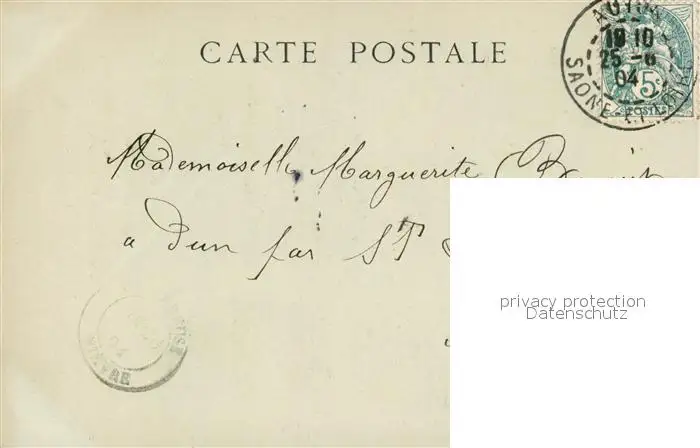 CARTE POSTALE
AUTUN
19 10
25 -6
04
SAONE-ET-
5c
POSTES
Mademoiselle Marguerite
a Dun par St
privacy protection
Datenschutz
04
NIEVRE